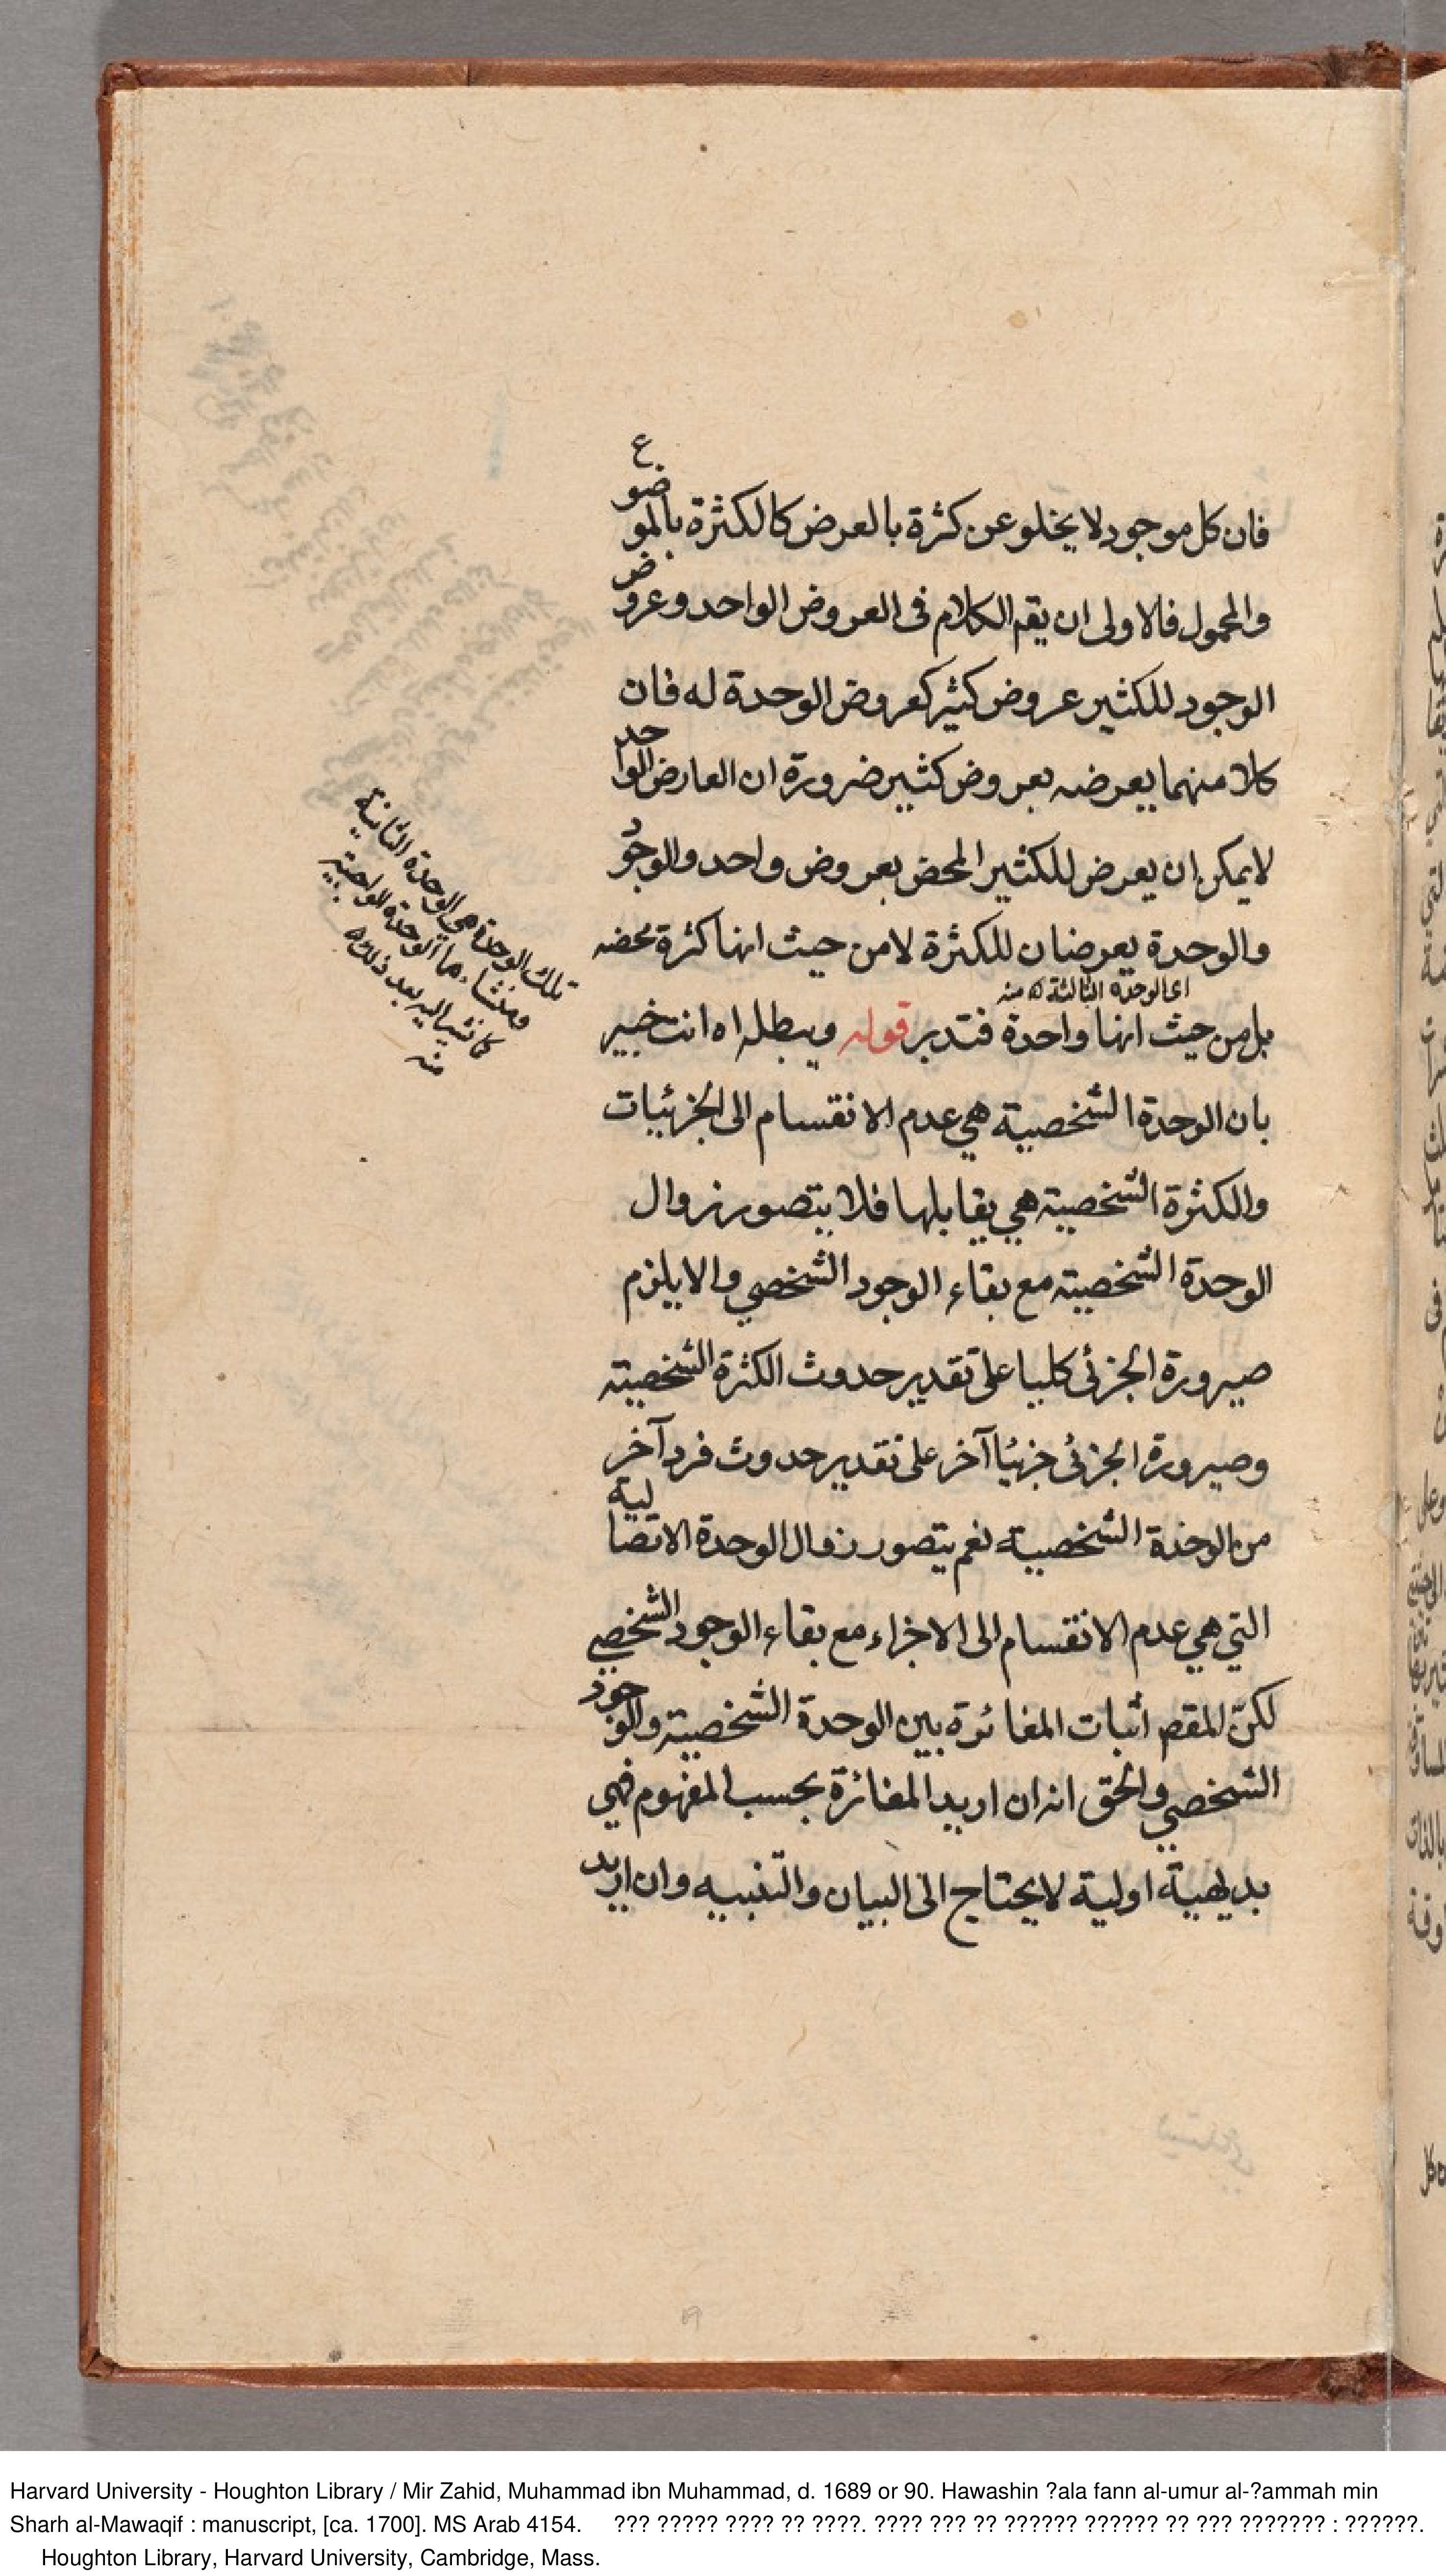 فان كل موجود لا يخلو عن كثرة بالعرض كالكثرة بالموضوع
والمحمول فالاولى ان يقم الكلام فى العروض الواحد وعروض
الوجود للكثير عروض كثير كعروض الوحدة له فان
كلا منهما يعرضه بعروض كثير ضرورة ان العارض الواحد
لا يمكن ان يعرض للكثير المحض بعروض واحد والوجود
والوحدة يعرضان للكثرة لا من حيث انها كثرة محضه
اى الوحدة الثالثة منه
بل من حيث انها واحدة فتدبر قوله ويبطله اه انت خبير
بان الوحدة الشخصية هي عدم الانقسام الى الجزئيات
والكثرة الشخصية هي يقابلها فلا يتصور زوال
الوحدة الشخصية مع بقاء الوجود الشخصي والا يلزم
صيرورة الجزئى كليا على تقدير حدوث الكثرة الشخصية
وصيرورة الجزئى جزئيا آخر على تقدير حدوث فرد آخر
من الوحدة الشخصية نعم يتصور زوال الوحدة الاتصالية
التي هي عدم الانقسام الى الاجزاء مع بقاء الوجود الشخصي
لكنّ المقصم اثبات المغائرة بين الوحدة الشخصية والوجود
الشخصي والحق انه ان اريد المغائرة بحسب المفهوم فهي
بديهية اولية لا يحتاج الى البيان والتنبيه وان اريد
تلك الوحدة هى الوحدة الثانية
ومنشاءهما الوحدة الواجبية
كما نشير اليه بعد ذلك
منه
Harvard University - Houghton Library / Mir Zahid, Muhammad ibn Muhammad, d. 1689 or 90. Hawashin ?ala fann al-umur al-?ammah min
Sharh al-Mawaqif : manuscript, [ca. 1700]. MS Arab 4154. ??? ????? ???? ?? ????. ???? ??? ?? ?????? ?????? ?? ??? ??????? : ??????.
Houghton Library, Harvard University, Cambridge, Mass.